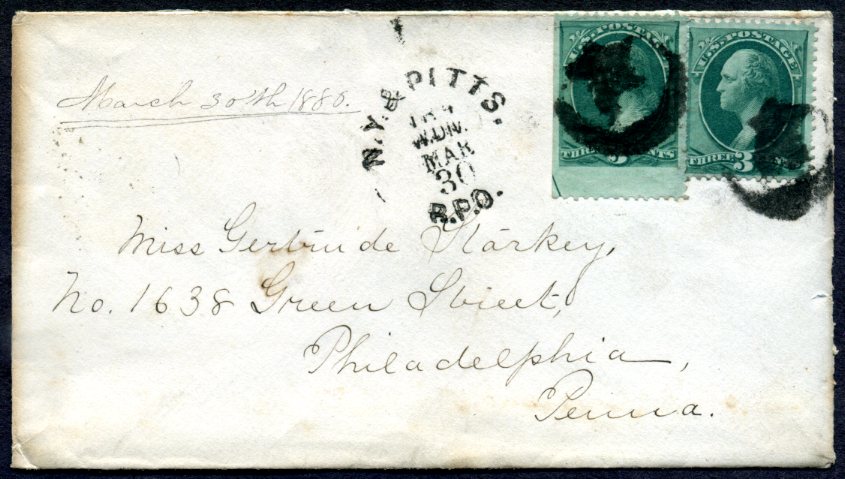 March 30th 1880.
N.Y. & PITTS.
W.D.W.
MAR
30
R.P.O.
U.S. POSTAGE
THREE 3 CENTS
U.S. POSTAGE
THREE 3 CENTS
Miss Gertrude Starkey,
No. 1638 Green Street,
Philadelphia,
Penna.